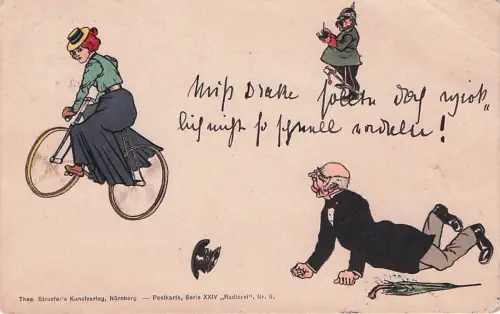 Miss Drake sollten doch
so schnell radeln!
Theo. Stroefer's Kunstverlag, Nürnberg — Postkarte, Serie XXIV „Radlerei", Nr. 6.